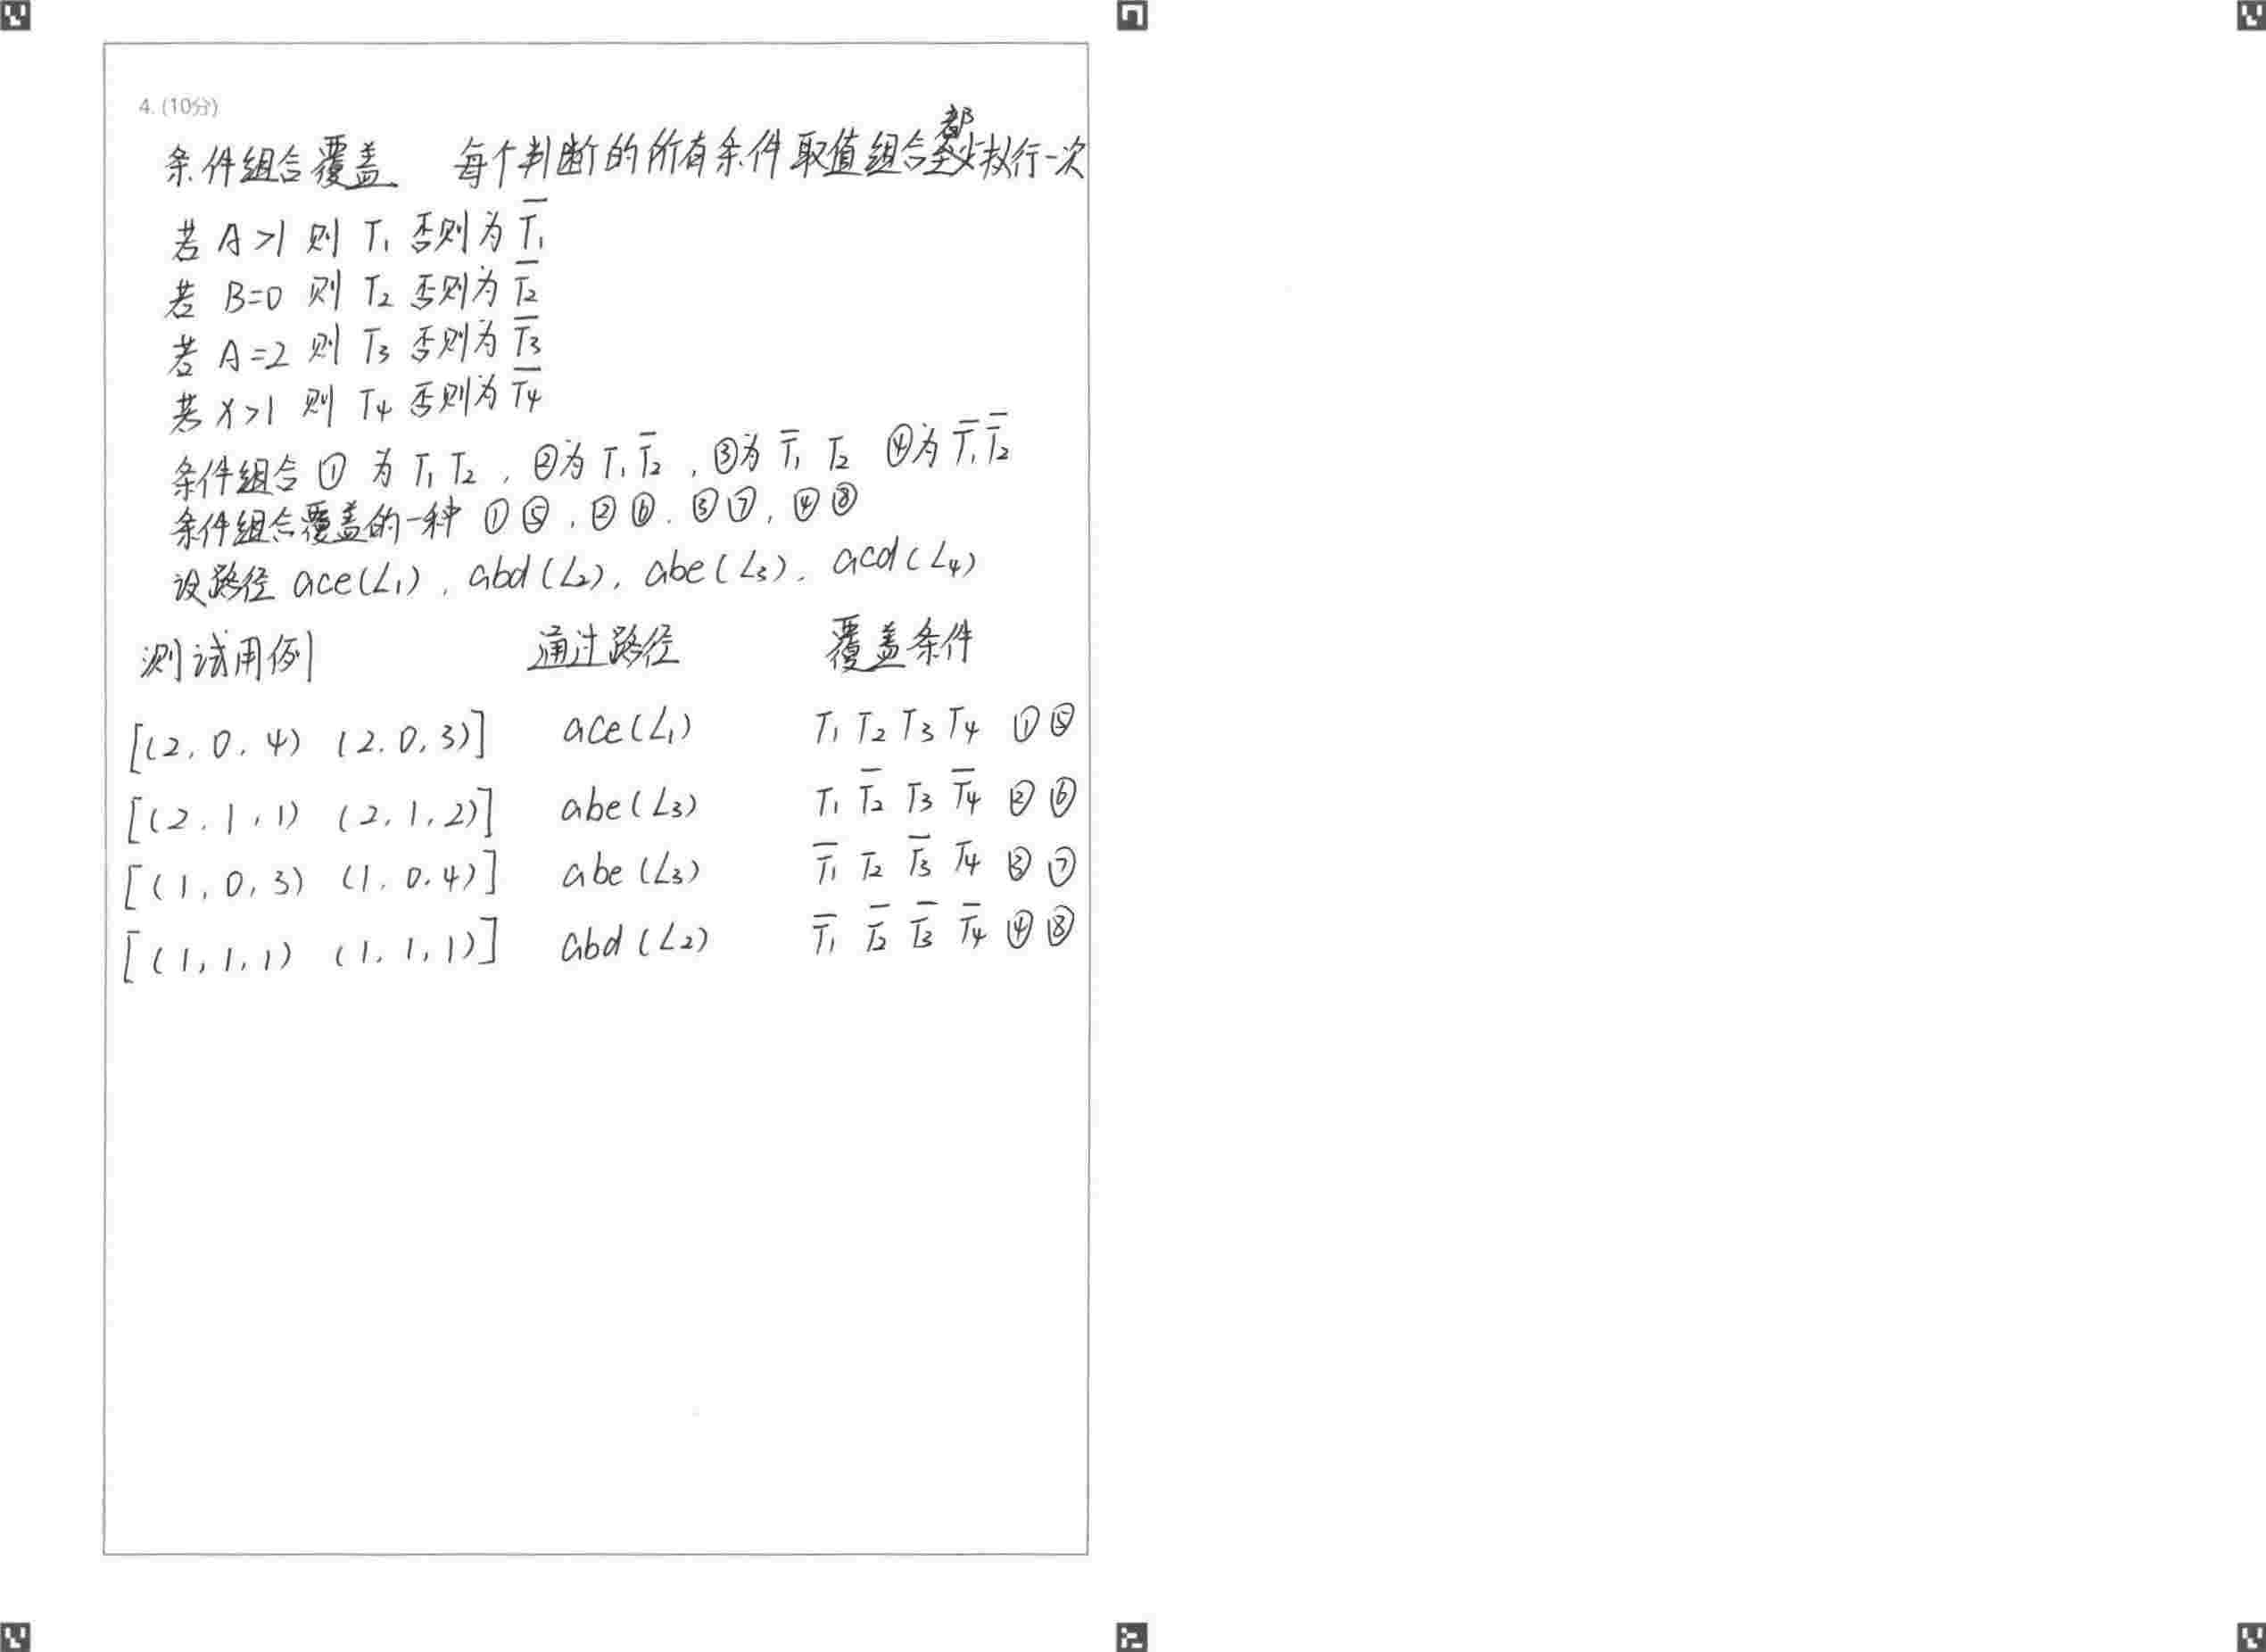 4. (10分)
条件组合覆盖 每个判断的所有条件取值组合都至少执行一次
若 A>1 则 T₁ 否则为 T̅₁
若 B=0 则 T₂ 否则为 T̅₂
若 A=2 则 T₃ 否则为 T̅₃
若 X>1 则 T₄ 否则为 T̅₄
条件组合 ① 为 T₁ T₂ , ②为 T₁ T̅₂ , ③为 T̅₁ T₂ ④为 T̅₁ T̅₂
条件组合覆盖的一种 ①⑤, ②⑥, ③⑦, ④⑧
设路径 ace(L₁), abd(L₂), abe(L₃), acd(L₄)
测试用例 通过路径 覆盖条件
[(2, 0, 4) (2, 0, 3)] ace(L₁) T₁ T₂ T₃ T₄ ①⑤
[(2, 1, 1) (2, 1, 2)] abe(L₃) T₁ T̅₂ T₃ T̅₄ ②⑥
[(1, 0, 3) (1, 0, 4)] abe(L₃) T̅₁ T₂ T̅₃ T₄ ③⑦
[(1, 1, 1) (1, 1, 1)] abd(L₂) T̅₁ T̅₂ T̅₃ T̅₄ ④⑧